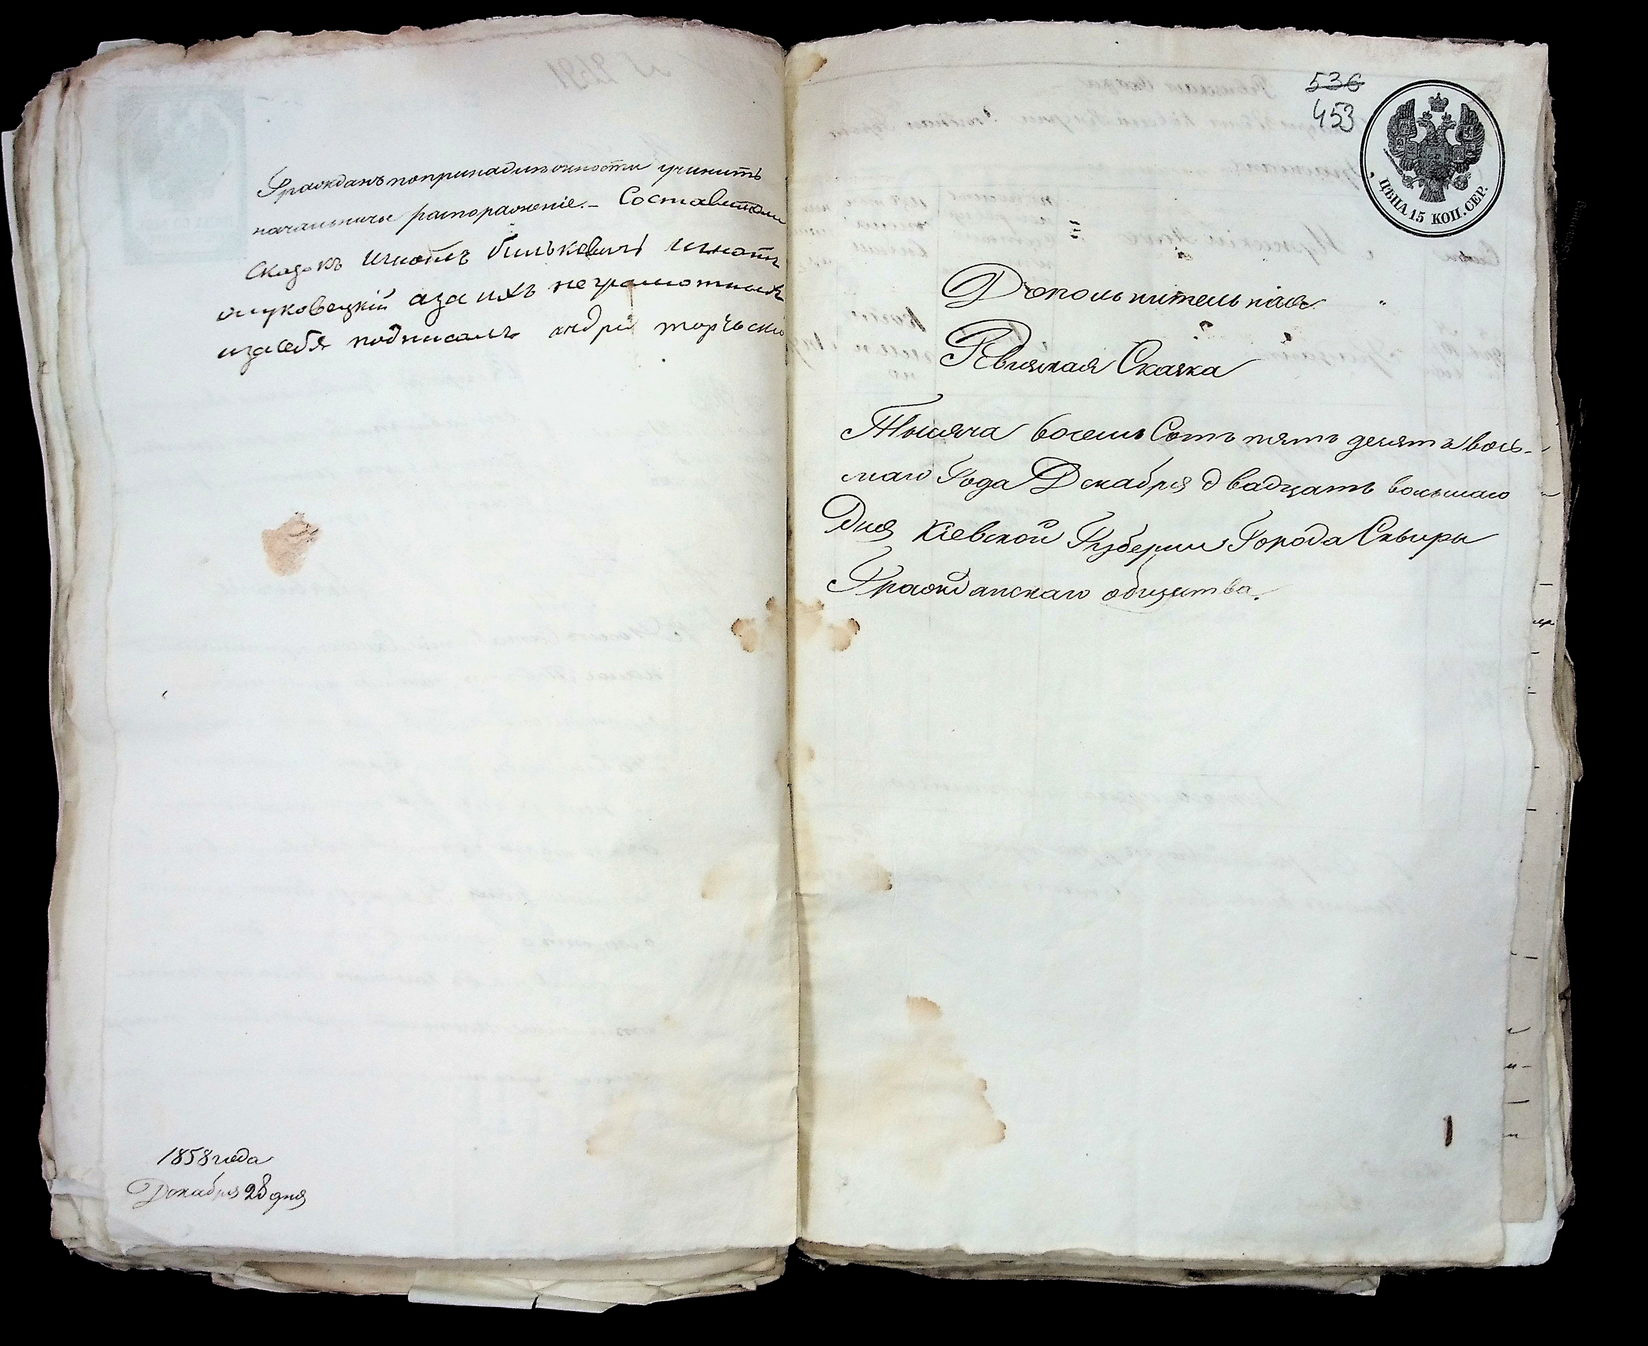 Граждан по принадлежности учинить
начальничье распоряжение. — Составители
сказокъ Игнатъ билькевичъ Игнатъ
а за ихъ неграмотныхъ
изасебя подписалъ андрій
1858 года
Декабря 28 дня
536
453
ЦѢНА 15 КОП. СЕР.
Дополнительная
Ревизская Сказка
Тысяча восемь Сотъ пять десятъ вось-
маго Года Декабря двадцать восьмаго
Дня Кіевской Губерніи Города Сквиры
Гражданскаго общества.